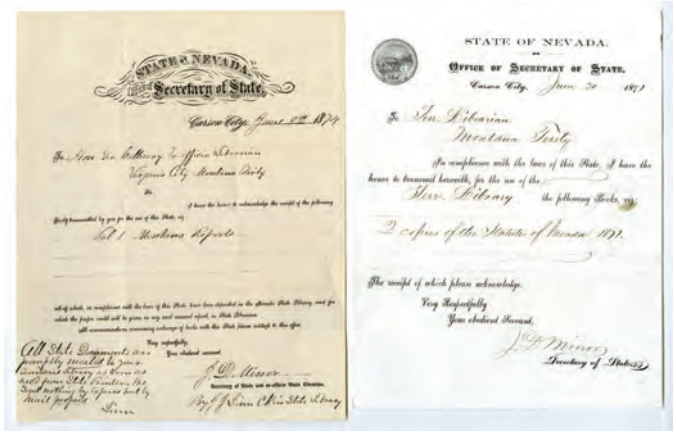 STATE OF NEVADA.
Office of Secretary of State,
Carson City, June 9th 1874
To Hon. Geo Callaway Ex officio Librarian
Virginia City Montana Ter'ty
Sir:
I have the honor to acknowledge the receipt of the following
transmitted by you for the use of this State,
Vol 1 Montana Reports
all of which, in compliance with the laws of this State have been deposited in the State Library, and for
which the proper credit will be given in my next annual report, as State Librarian.
All communications concerning exchange of books with this State please address to this office.
Very respectfully,
Your obedient servant,
J. D. Minor
Secretary of State and ex-officio State Librarian.
By State Library
All State Documents are
promptly mailed to your
Library as soon as
rec'd from State Printer. We
Send nothing by Express but by
mail prepaid
STATE OF NEVADA.
OFFICE OF SECRETARY OF STATE,
Carson City, June 20 1871
To Terr. Librarian
Montana Ter'ty
In compliance with the laws of this State, I have the
honor to transmit herewith, for the use of the
Terr. Library the following Books, viz:
2 copies of the Statutes of Nevada 1871.
The receipt of which please acknowledge.
Very Respectfully
Your obedient Servant,
J. D. Minor
Secretary of State